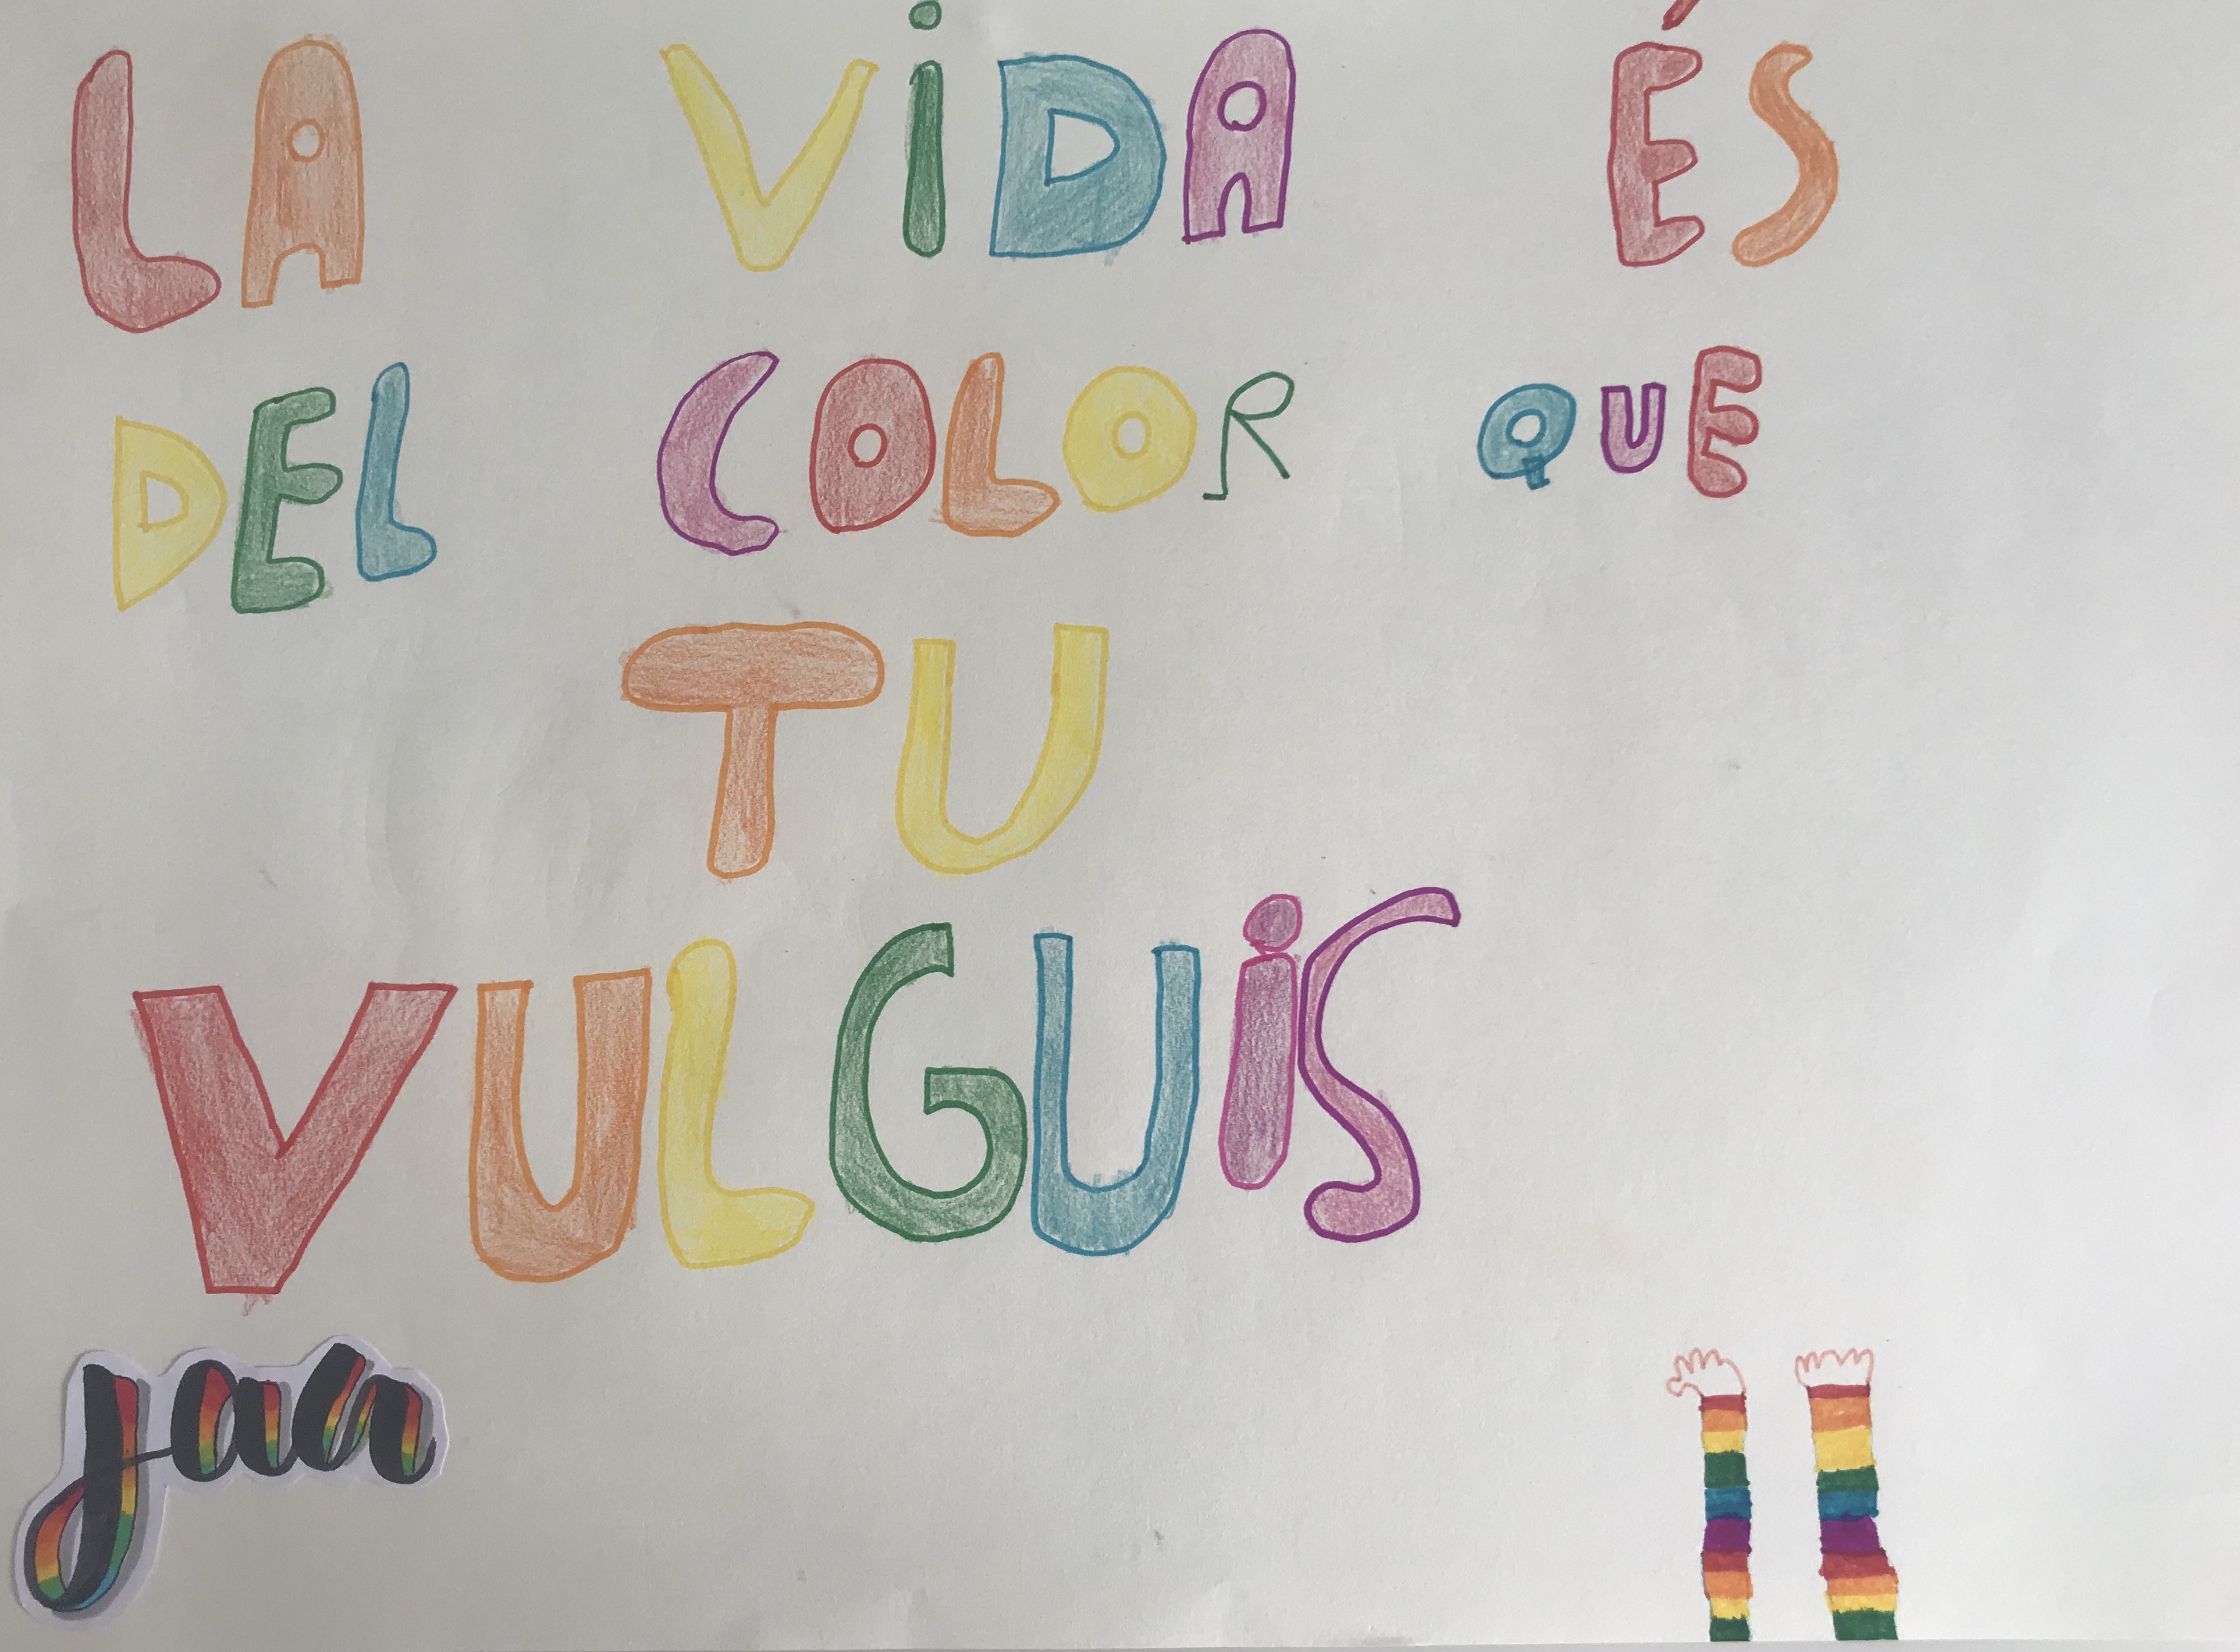 LA ViDA ÉS
DEL COLOR QUE
TU
VULGUiS